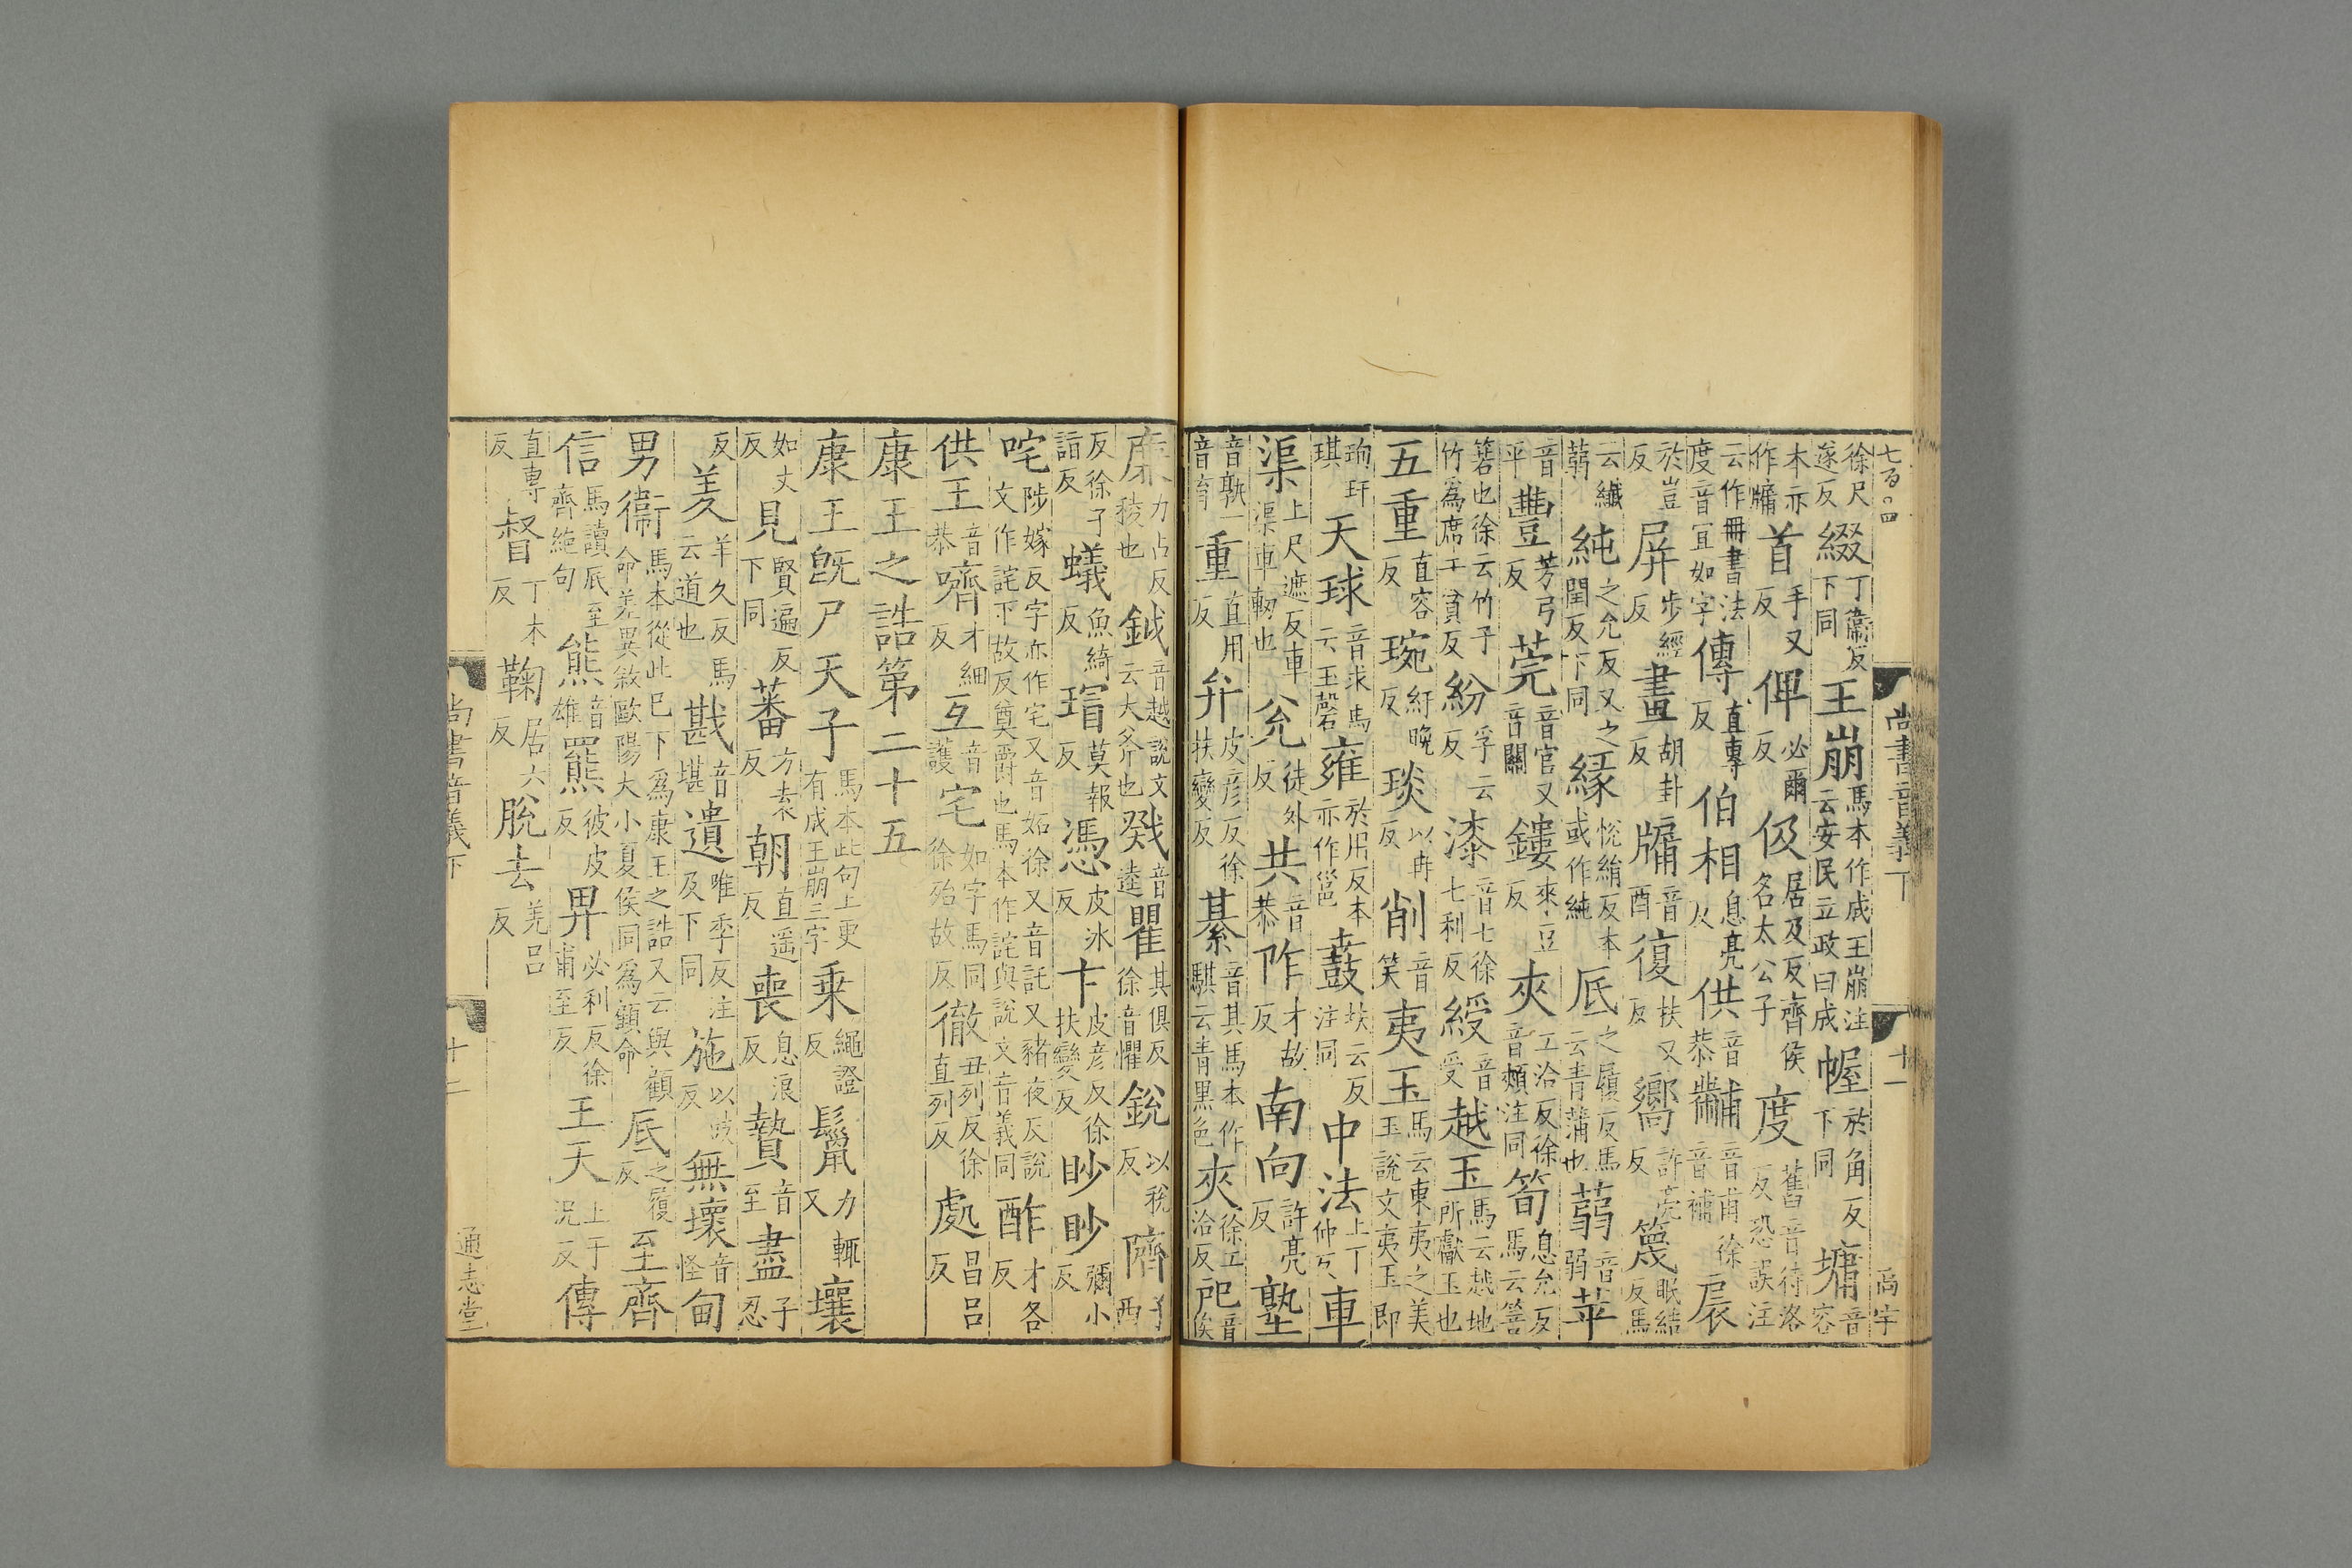 七百○四 尚書音義下 十一
徐尺遂反 綴丁衞反下同 王崩馬本作成王崩注云安民立政曰成 幄於角反下同 墉音容
本亦作牗 首手又反 俾必爾反 伋居及反齊侯名太公子 度舊音待洛反恐誤注
云作冊書法度音宜如字 傳直專反 伯相息亮反 供音恭 黼音甫徐音補 扆
於豈反 屏步經反 畫胡卦反 牖音酉 復扶又反 嚮許亮反 篾眠結反馬
云纖蒻 純之允反又之閏反下同 緣悅絹反本或作純 厎之履反馬云青蒲也 蒻音弱 苹
音平 豐芳弓反 莞音官又音關 鏤來豆反 夾工洽反徐音頰注同 筍息允反馬云箁
箬也徐云竹子竹爲席于貧反 紛孚云反 漆音七徐七利反 綬音受 越玉馬云越地所獻玉也
五重直容反 琬紆晚反 琰以冉反 削音笑 夷玉馬云東夷之美玉說文夷玉即
珣玗琪 天球音求馬云玉磬 雍於用反本亦作邕 鼖扶云反注同 中法上丁仲反 車
渠上尺遮反車渠車輞也 兊徒外反 共音恭 阼才故反 南向許亮反 塾
音孰一音育 重直用反 弁皮彥反徐扶變反 綦音其馬本作騏云青黑色 夾徐工洽反 戺音俟
力占反稜也 鉞音越說文云大斧也 戣音逵 瞿其俱反徐音懼 銳以稅反 隮子西
反徐子詣反 蟻魚綺反 瑁莫報反 憑皮冰反 卞皮彥反徐扶變反 眇眇彌小反
咤陟嫁反字亦作宅又音妬徐又音託又豬夜反說文作詫下故反奠爵也馬本作詫與說文音義同 酢才各反
供王音恭 嚌才細反 互音護 宅如字馬同徐殆故反 徹丑列反徐直列反 處昌呂反
康王之誥第二十五
康王旣尸天子馬本此句上更有成王崩三字 乗繩證反 鬣力輒又 壤
如丈反 見賢遍反下同 蕃方袁反 朝直遥反 喪息浪反 贄音至 盡子忍
反 羑羊久反馬云道也 戡音堪 遺唯季反注及下同 施以豉反 無壞音怪 甸
男衞馬本從此巳下爲康王之誥又云與顧命差異敘歐陽大小夏侯同爲顧命 厎之履反 至齊
信馬讀厎至齊絶句 熊音雄 羆彼皮反 畀必利反徐甫至反 王天上于況反 傳
直專反 督丁木反 鞠居六反 脫去羌呂反
尚書音義下 十二 通志堂